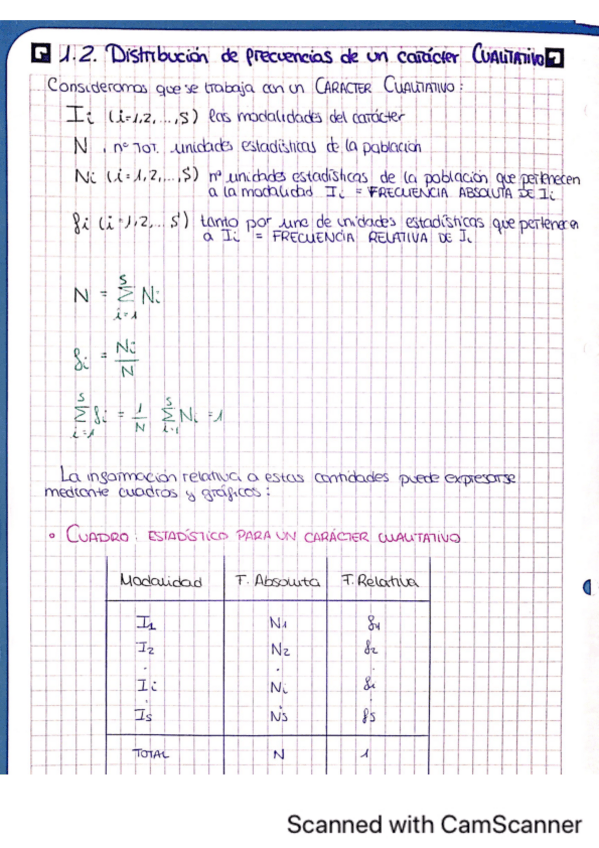 1.2. Distribución de frecuencias de un carácter CUALITATIVO
Consideramos que se trabaja con un CARACTER CUALITATIVO:
Ii (i=1,2,...,S) las modalidades del carácter
N , nº TOT. unidades estadísticas de la población
Ni (i=1,2,...,S) nº unidades estadísticas de la población que pertenecen
a la modalidad Ii = FRECUENCIA ABSOLUTA DE Ii
fi (i=1,2,...S) tanto por uno de unidades estadísticas que pertenecen
a Ii = FRECUENCIA RELATIVA DE Ii
N = S Σ i=1 Ni
fi = Ni / N
S Σ i=1 fi = 1/N S Σ i=1 Ni = 1
La información relativa a estas cantidades puede expresarse
mediante cuadros y gráficos:
• CUADRO: ESTADÍSTICO PARA UN CARÁCTER CUALITATIVO
Modalidad F. Absoluta F. Relativa
I1 N1 f1
I2 N2 f2
. . .
Ii Ni fi
. . .
Is Ns fs
TOTAL N 1
Scanned with CamScanner